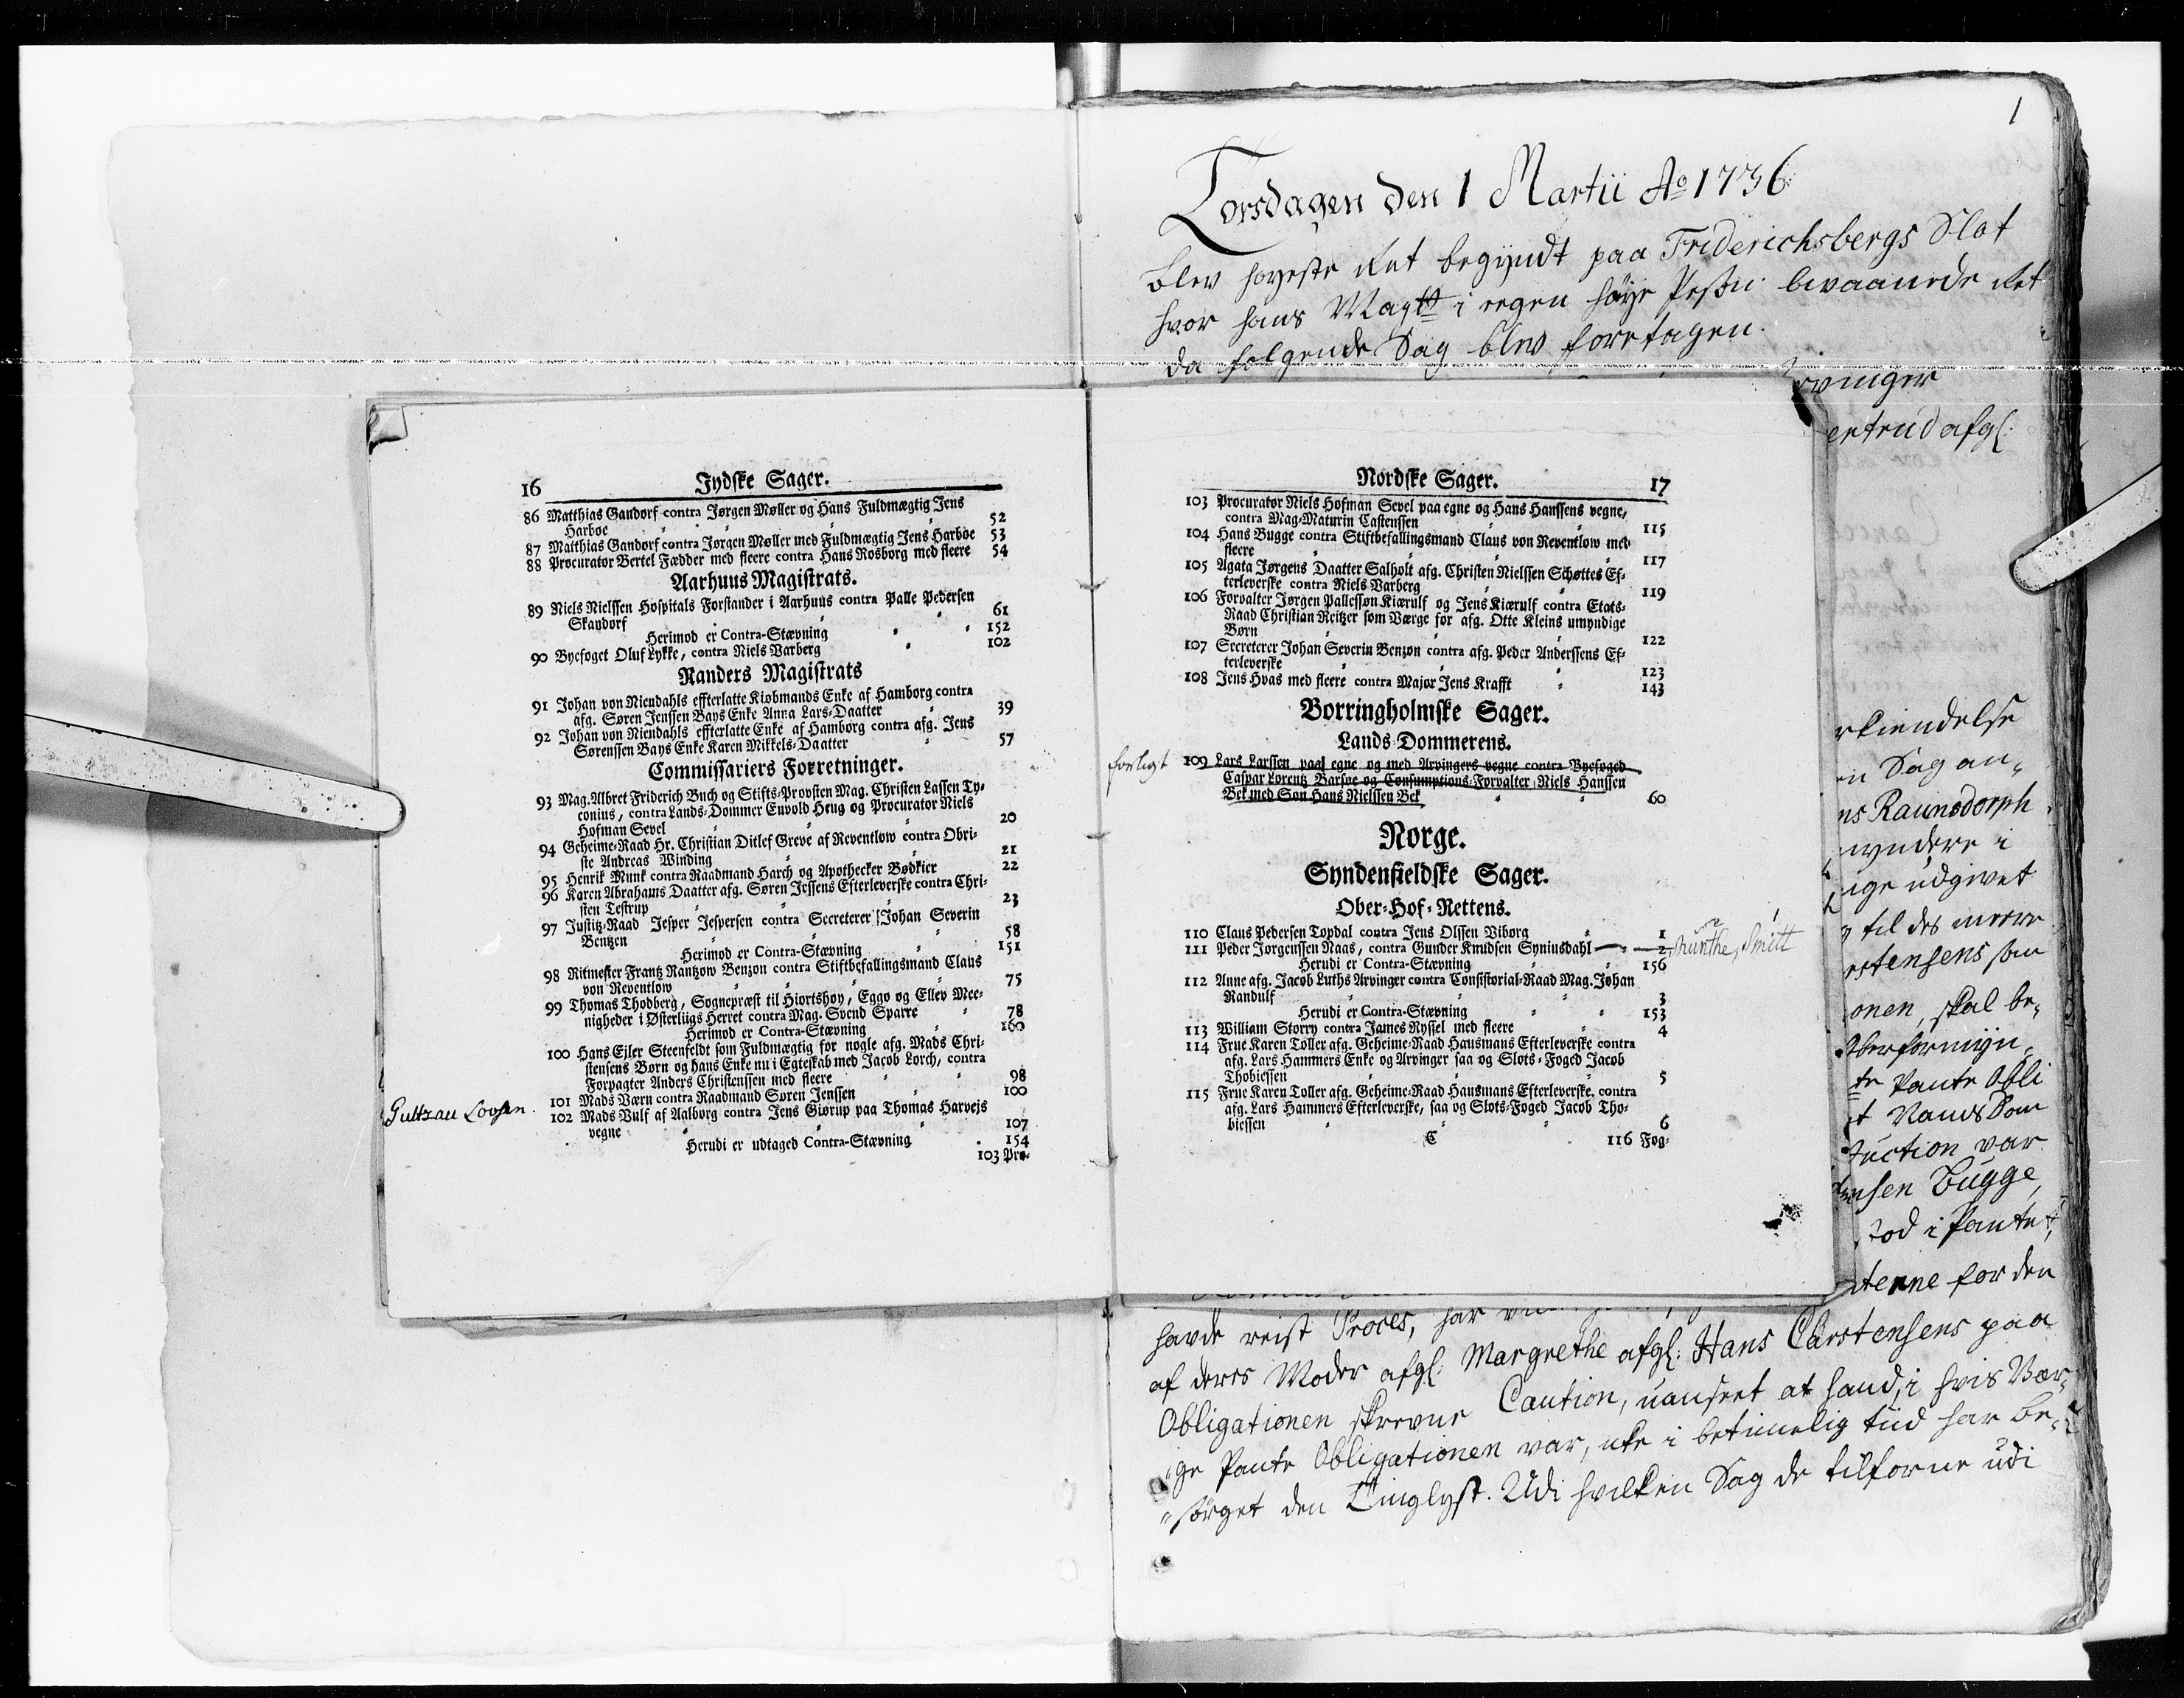 1
Torsdagen den 1 Martii Ao 1736
blev høyeste Ret begyndt paa Friderichsbergs Slot
hvor hans Maytt i egen høye Persn: bevaanede Ret
da følgende Sag blev foretagen.
16 Jydske Sager.
86 Matthias Gandorf contra Jørgen Møller og Hans Fuldmægtig Jens
Harboe 52
87 Matthias Gandorf contra Jørgen Møller med Fuldmægtig Jens Harboe 53
88 Procurator Bertel Fædder med fleere contra Hans Rosborg med fleere 54
Aarhuus Magistrats.
89 Niels Nielssen Hospitals Forstander i Aarhuus contra Palle Pedersen
Skandorf 61
Herimod er Contra-Stævning 152
90 Byefoget Oluf Lykke, contra Niels Varberg 102
Randers Magistrats
91 Johan von Niendahls effterlatte Kiøbmands Enke af Hamborg contra
afg. Søren Jenssen Bays Enke Anna Lars-Daatter 39
92 Johan von Niendahls effterlatte Enke af Hamborg contra afg. Jens
Sørenssen Bays Enke Karen Mikkels-Daatter 57
Commissariers Forretninger.
93 Mag. Albret Friderich Buch og Stifts-Provsten Mag. Christen Lassen Ty-
conius, contra Lands-Dommer Euvold Heug og Procurator Niels
Hofman Sevel 20
94 Geheime-Raad Hr. Christian Ditlef Greve af Reventlow contra Obri-
ste Andreas Winding 21
95 Henrik Munk contra Raadmand Harch og Apothecker Bødkier 22
96 Karen Abrahams Daatter afg. Søren Jessens Efterleverske contra Chri-
sten Testrup 23
97 Justitz-Raad Jesper Jespersen contra Secreterer Johan Severin
Bentzen 58
Herimod er Contra-Stævning 151
98 Ritmester Frantz Rantzow Benzon contra Stiftbefallingsmand Claus
von Reventlow 75
99 Thomas Thodberg, Sognepræst til Hiortshøy, Eggo og Ellev Mee-
nigheder i Østerliigs Herret contra Mag. Svend Sparre 78
Herimod er Contra-Stævning 160
100 Hans Ejler Steenfeldt som Fuldmægtig for nogle afg. Mads Chri-
stensens Børn og hans Enke nu i Egteskab med Jacob Lorch, contra
Forpagter Anders Christenssen med fleere 98
101 Mads Værn contra Raadmand Søren Jenssen 100
102 Mads Vulf af Aalborg contra Jens Giørup paa Thomas Harvejs
vegne 107
Herudi er udtaged Contra-Stævning 154
103 Pro-
Nordske Sager. 17
103 Procurator Niels Hofman Sevel paa egne og Hans Hanssens vegne,
contra Mag-Maturin Castenssen 115
104 Hans Bugge contra Stiftbefallingsmand Claus von Reventlow med
fleere 117
105 Agata Jørgens Daatter Salholt afg. Christen Nielssen Schøttes Ef-
terleverske contra Niels Varberg 119
106 Forvalter Jørgen Pallessøn Kiærulf og Jens Kiærulf contra Etats-
Raad Christian Reitzer som Værge for afg. Otte Kleins umyndige
Børn 122
107 Secreterer Johan Severin Benzon contra afg. Peder Anderssens Ef-
terleverske 123
108 Jens Hvas med fleere contra Major Jens Krafft 143
Borringholmske Sager.
Lands-Dommerens.
forligt
109 Lars Larssen paa egne og med Arvingers vegne contra Byefoged
Caspar Lorentz Barsøe og Consumptions-Forvalter Niels Hanssen
Bek med Søn Hans Nielssen Bek 60
Norge.
Syndenfieldske Sager.
Ober-Hof-Rettens.
110 Claus Pedersen Topdal contra Jens Olssen Viborg 1
111 Peder Jørgenssen Naas, contra Gunder Knudsen Syniusdahl 2
Herudi er Contra-Stævning 156
112 Anne afg. Jacob Luths Arvinger contra Consistorial-Raad Mag. Johan
Randulf 3
Herudi er Contra-Stævning 153
113 William Storry contra James Ryssel med fleere 4
114 Frue Karen Toller afg. Geheime-Raad Hausmans Efterleverske contra
afg. Lars Hammers Enke og Arvinger saa og Slots-Foged Jacob
Thobiessen 5
115 Frue Karen Toller afg. Geheime-Raad Hausmans Efterleverske, contra
afg. Lars Hammers Efterleverske, saa og Slots-Foged Jacob Tho-
biessen 6
C 116 Fog-
Munthe, Smitt
rvinger
ertrud afgl:
rkiendelse
n Sag an,,
ns Raunsdorph
myndere i
ige udgivet
til des meere
rstensens som
onen, skal be,
Oberformyn,
te Pante Obli
auction var
ensen Bugge,
stod i Pantet,
aterne for den
havde reist Proces, har
af deres Moder afgl: Margrethe afgl: Hans Carstensens paa
Obligationen skrevne Caution, uanseet at hand, i hvis Vær,,
,,ge Pante Obligationen var, icke i betimelig tiid har be,,
,,sørget den Tinglyst. Udi hvilken Sag de tilforne udi